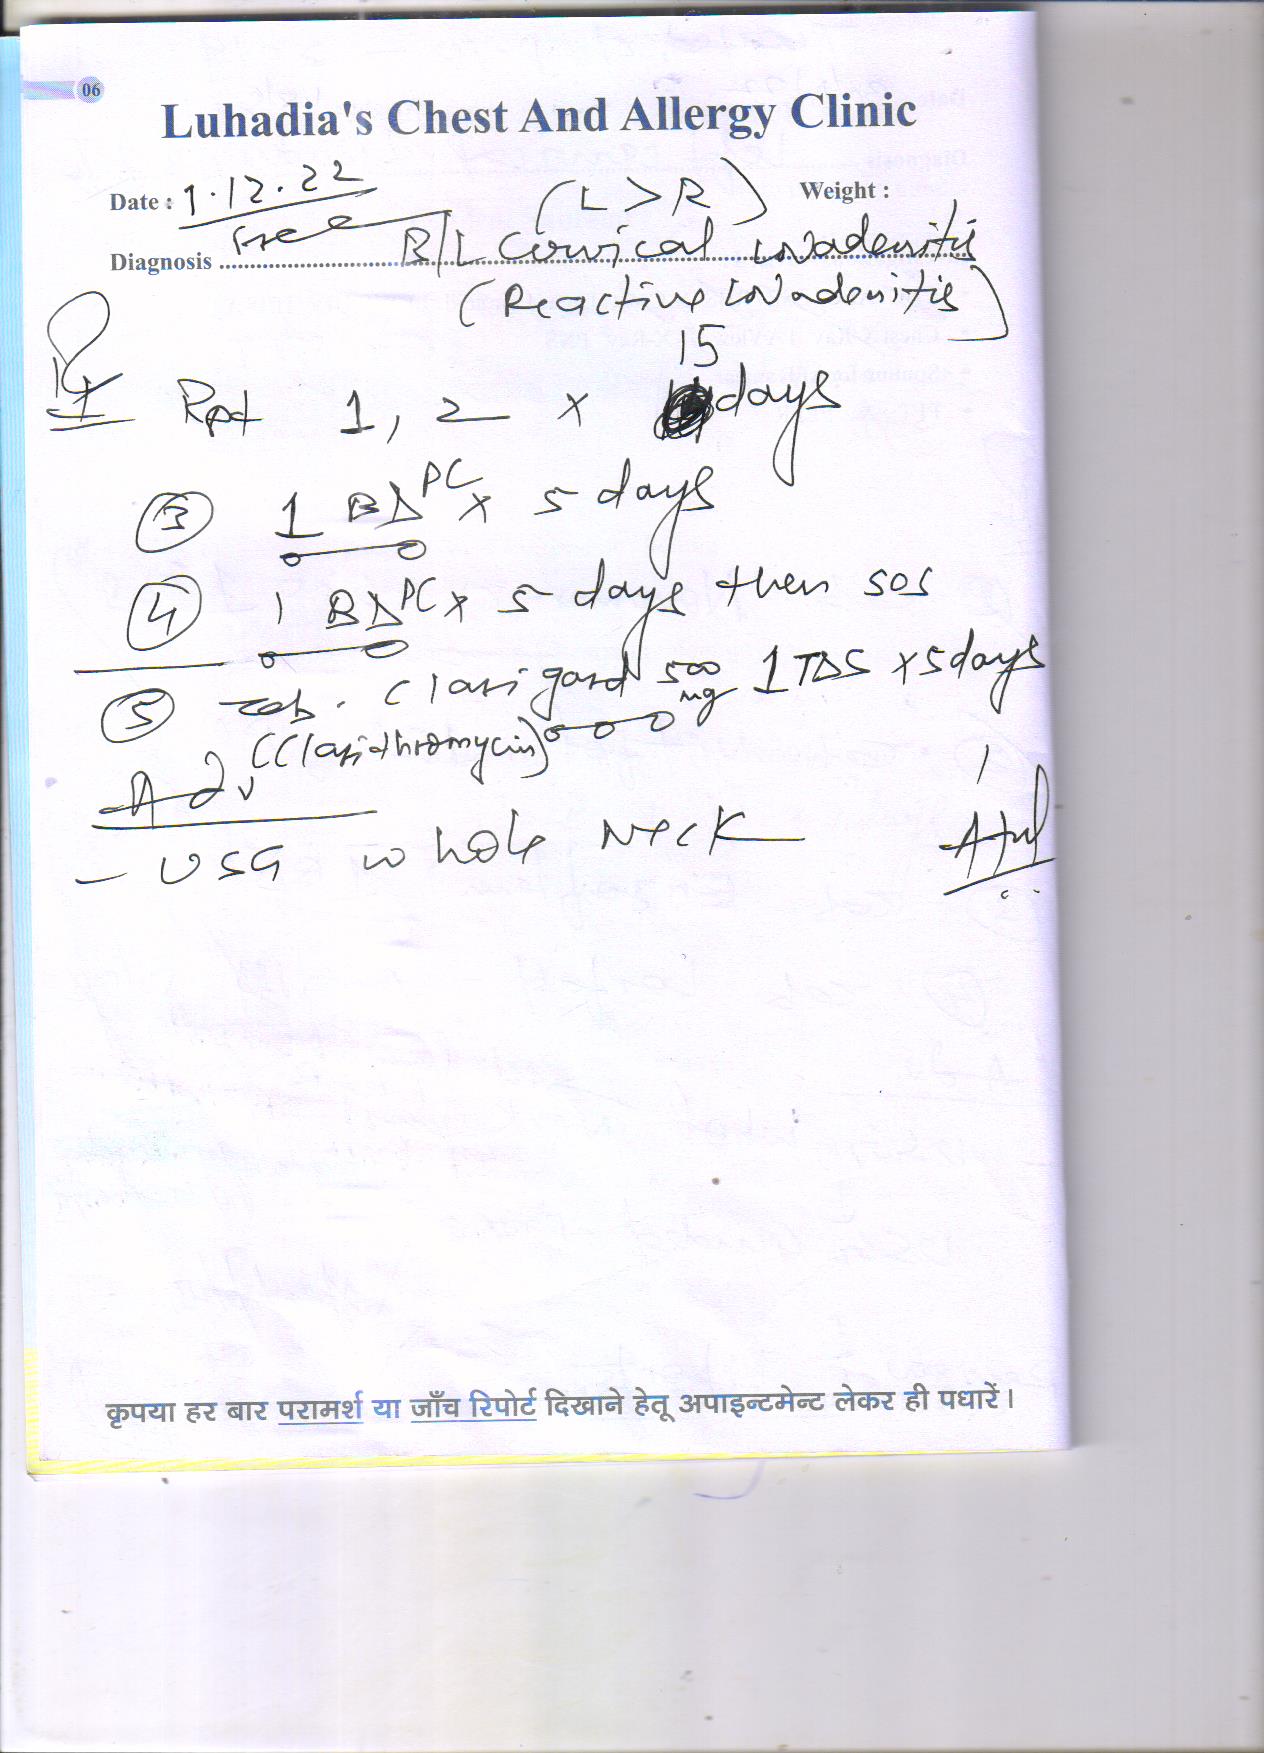 06
Luhadia's Chest And Allergy Clinic
Date : 1.12.22 (L > R) Weight :
Free
Diagnosis B/L Cervical
(Reactive
15
Rpt 1, 2 x days
3 1 BD PC x 5 days
4 1 BD PC x 5 days then SOS
5 Tab. Clarigard 500 mg 1 TDS x 5 days
(Clarithromycin)
Adv
- USG whole Neck
कृपया हर बार परामर्श या जाँच रिपोर्ट दिखाने हेतू अपाइन्टमेन्ट लेकर ही पधारें ।